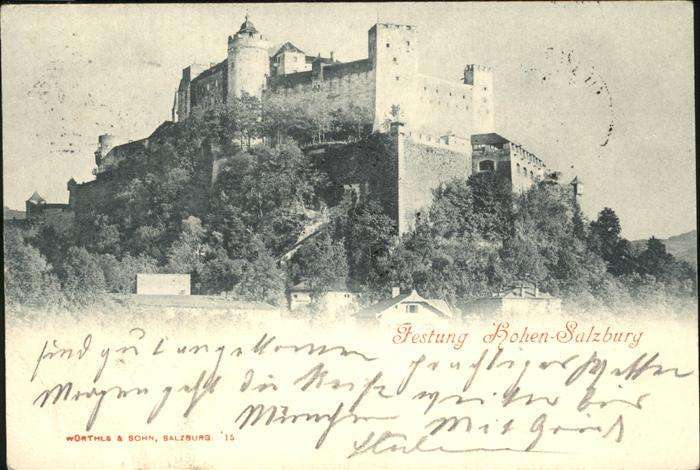 Festung Hohen-Salzburg
sind gut angekommen prachtiges Wetter
Morgen geht die Reise weiter bis
München Mit Gruß
WÜRTHLE & SOHN, SALZBURG. 15